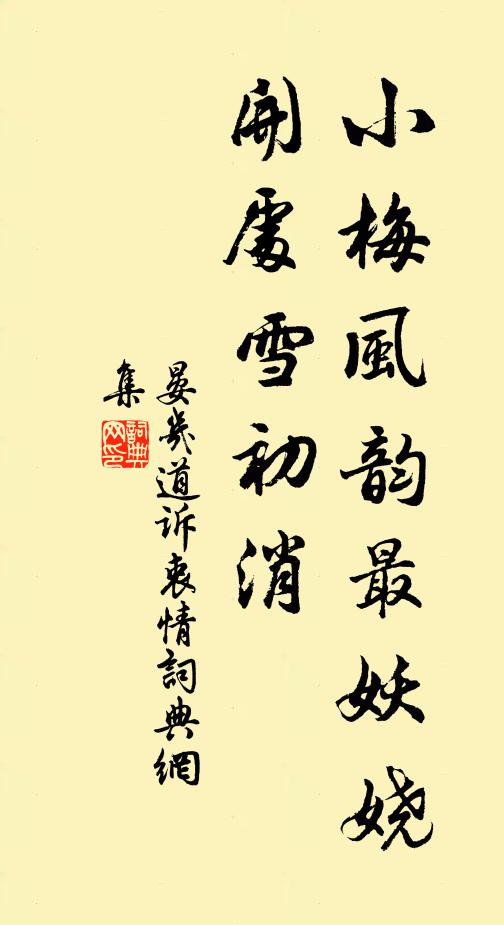 小梅風韵最妖娆
開處雪初消
晏幾道訴衷情詞典網
集
詞典
网印